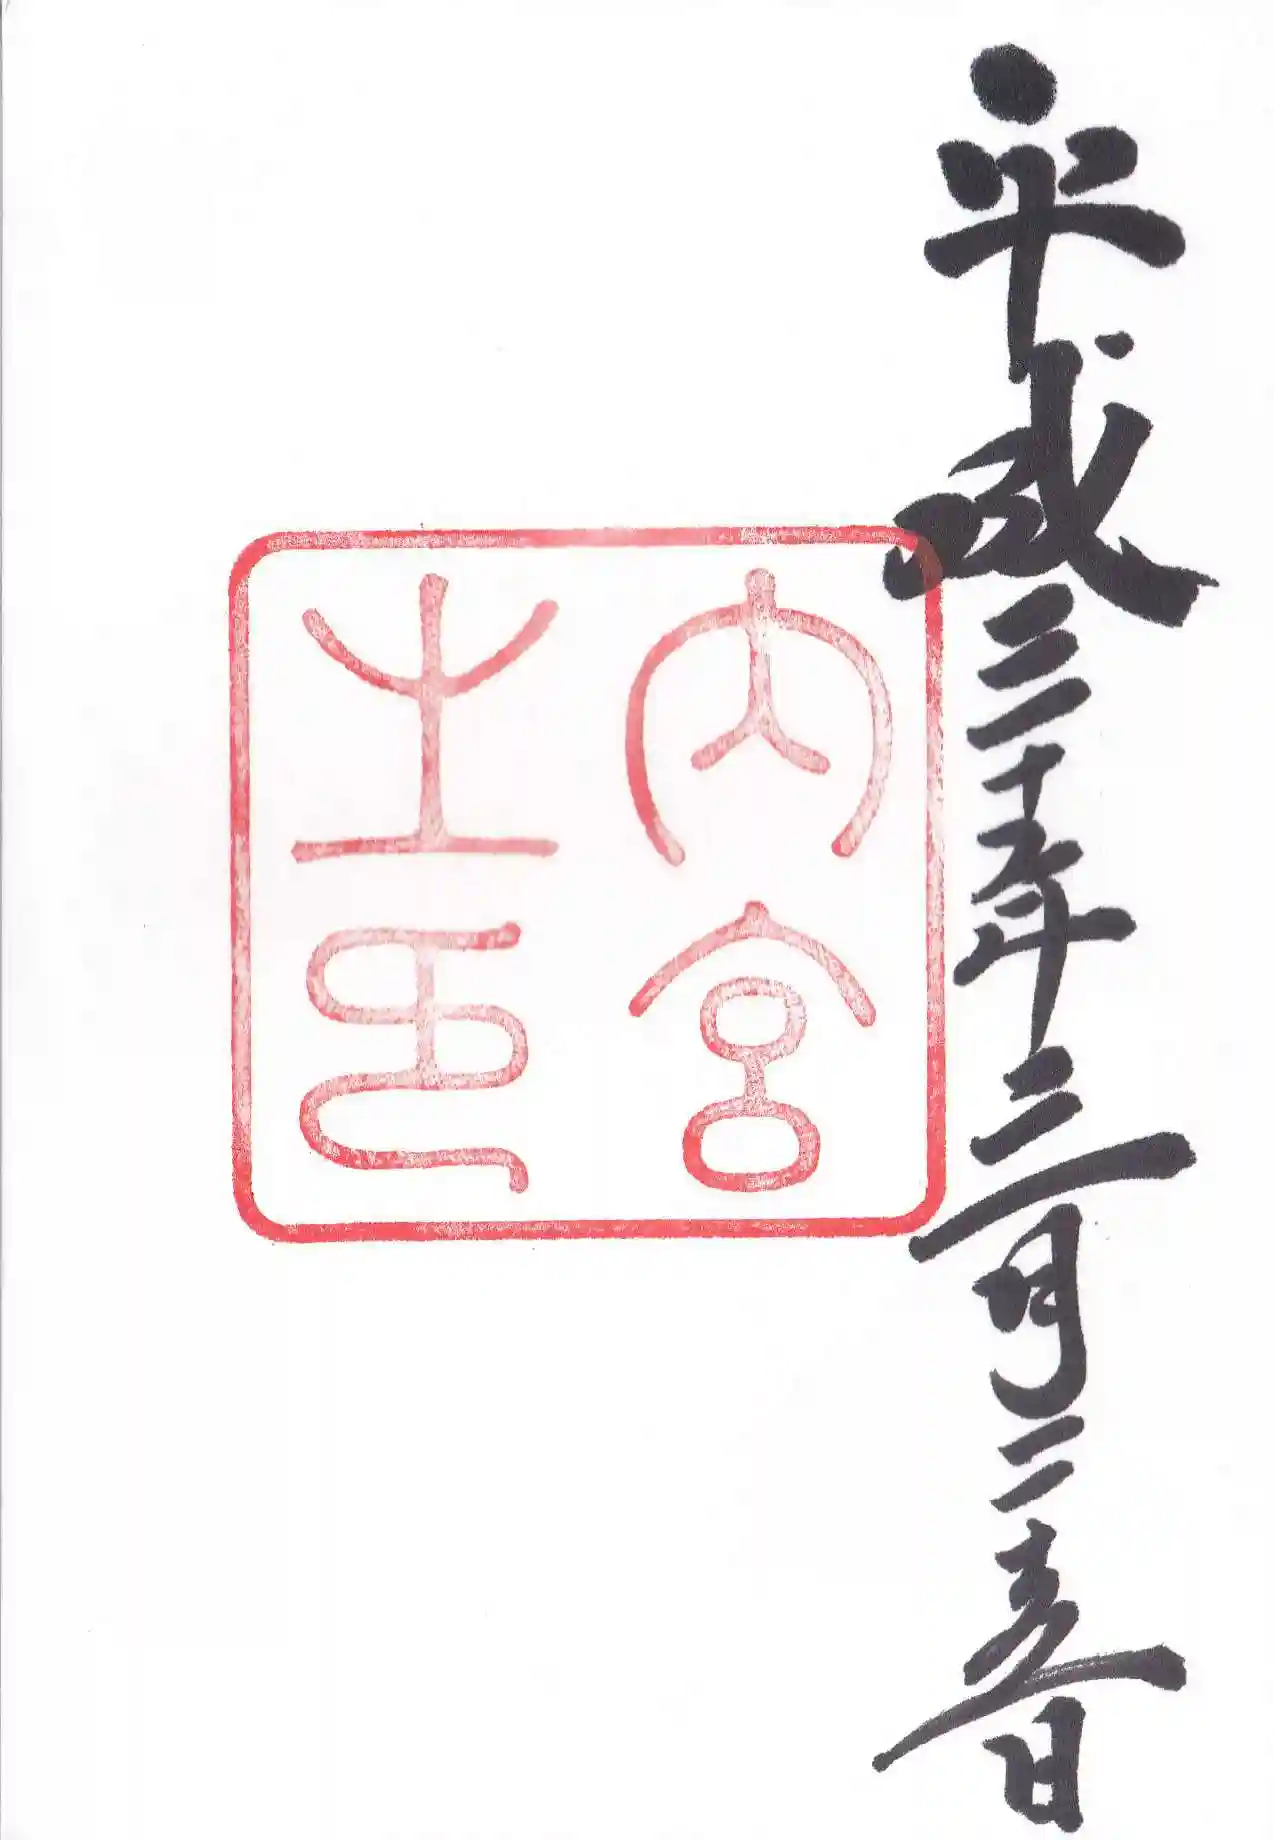 平成三十年三月二十五日
内宮
之印